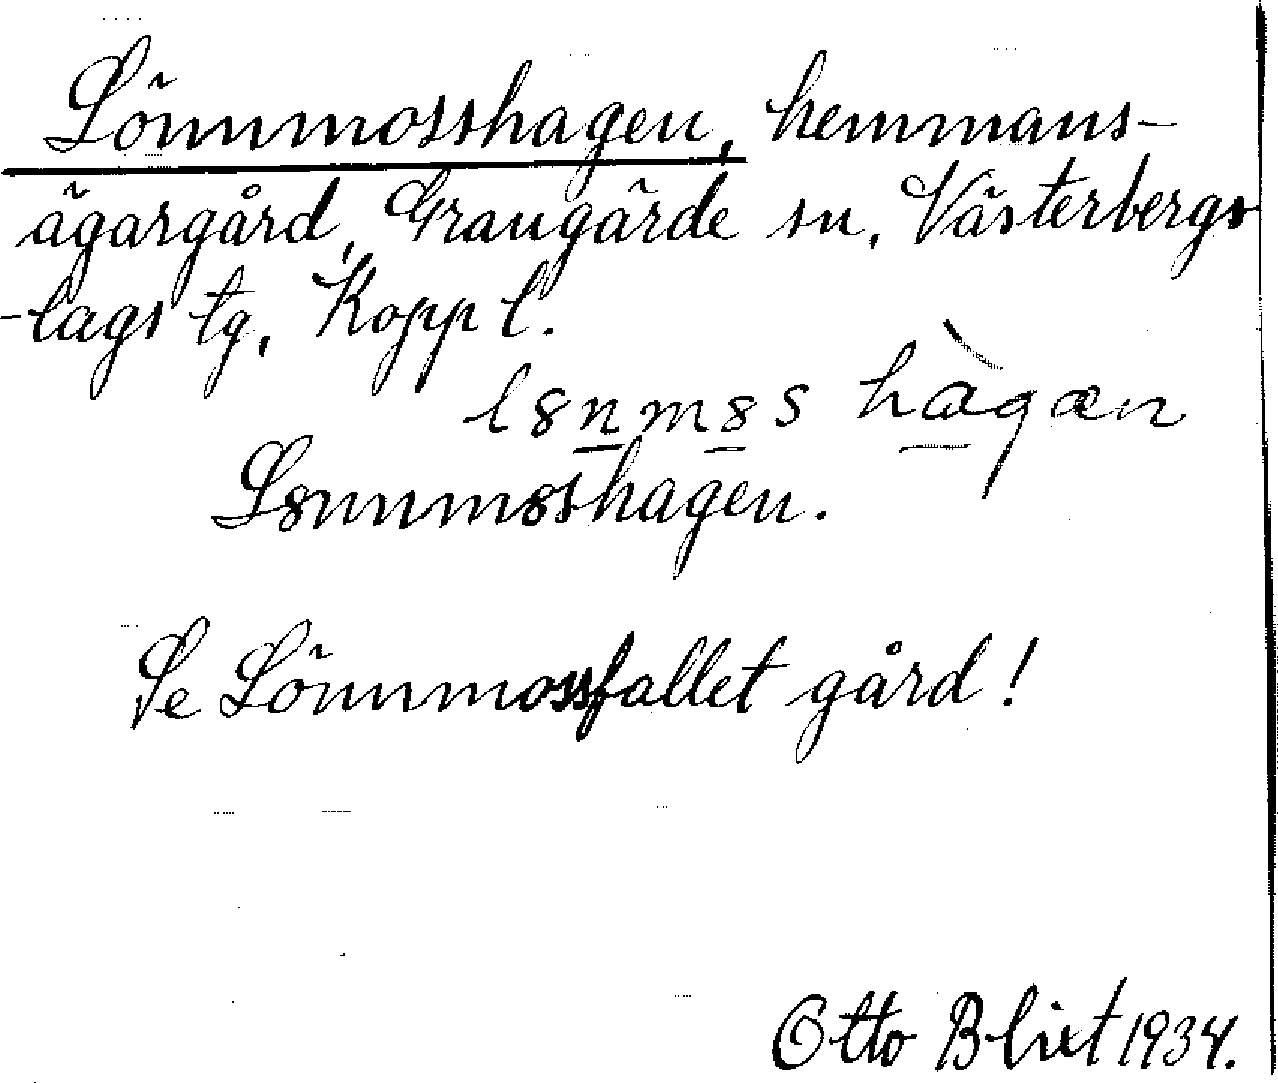 Lönnmosshagen, hemmans-
ägargård, Grangärde sn, Västerbergs
-lags tg, Kopp l.
l8nm8s hàgæn
L8nnm8shagen.
Se Lönnmossfallet gård!
Otto Blixt 1934.